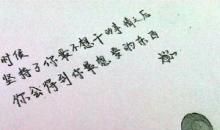 时候
坚持了你最不想干的事情之后
你会得到你最想要的东西